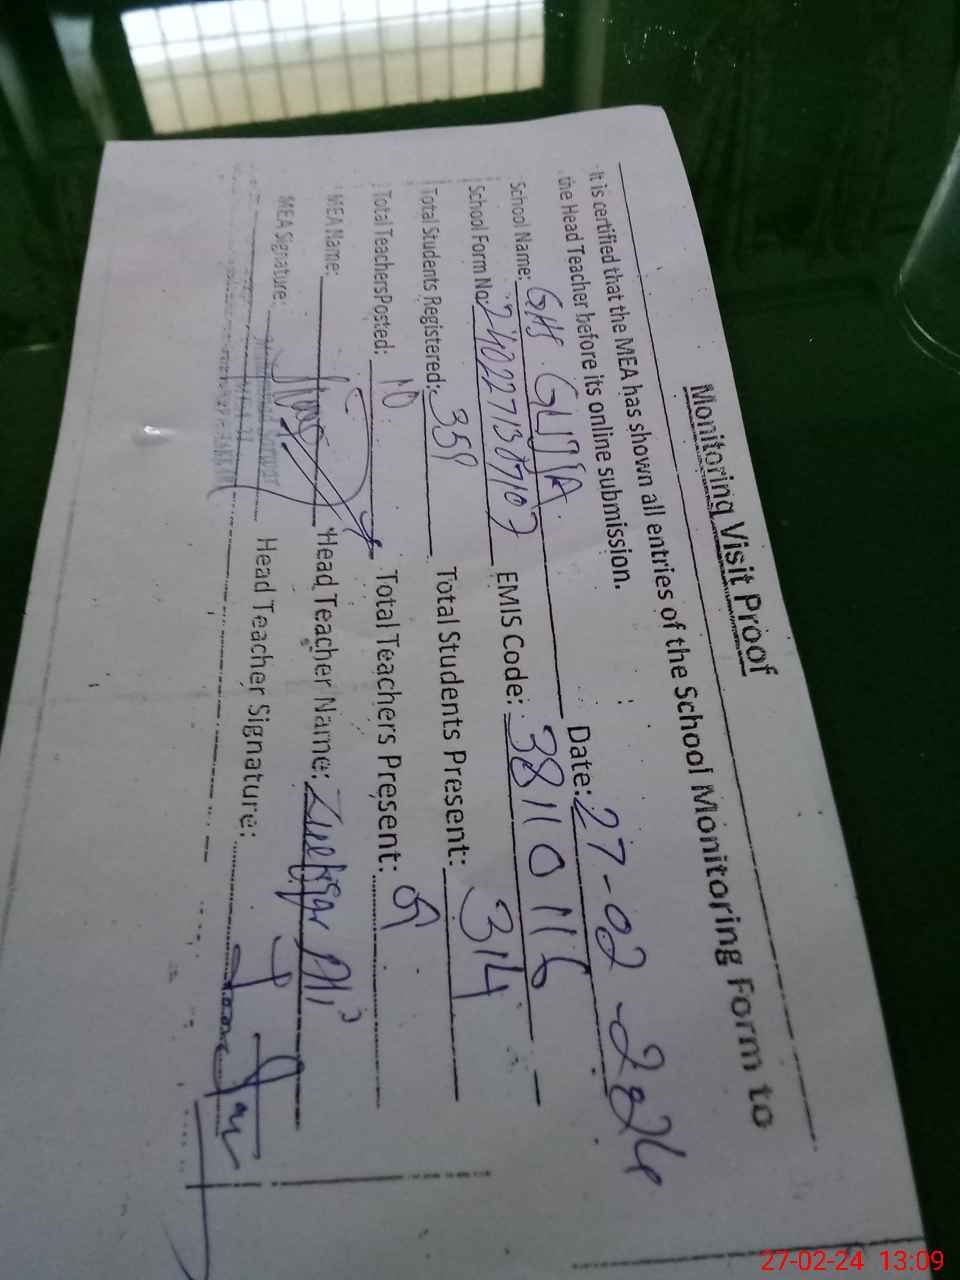 Monitoring Visit Proof
It is certified that the MEA has shown all entries of the School Monitoring Form to
the Head Teacher before its online submission.
School Name: GHS Date: 27-02-2024
School Form No: 24022713107107 EMIS Code: 38110116
Total Students Registered: 359 Total Students Present: 314
Total TeachersPosted: 10 Total Teachers Present: 09
MEA Name: Head Teacher Name: Zulfiqar Ali
MEA Signature: Head Teacher Signature:
27-02-24 13:09